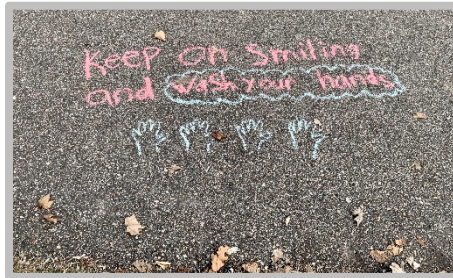 Keep on Smiling
and wash your hands